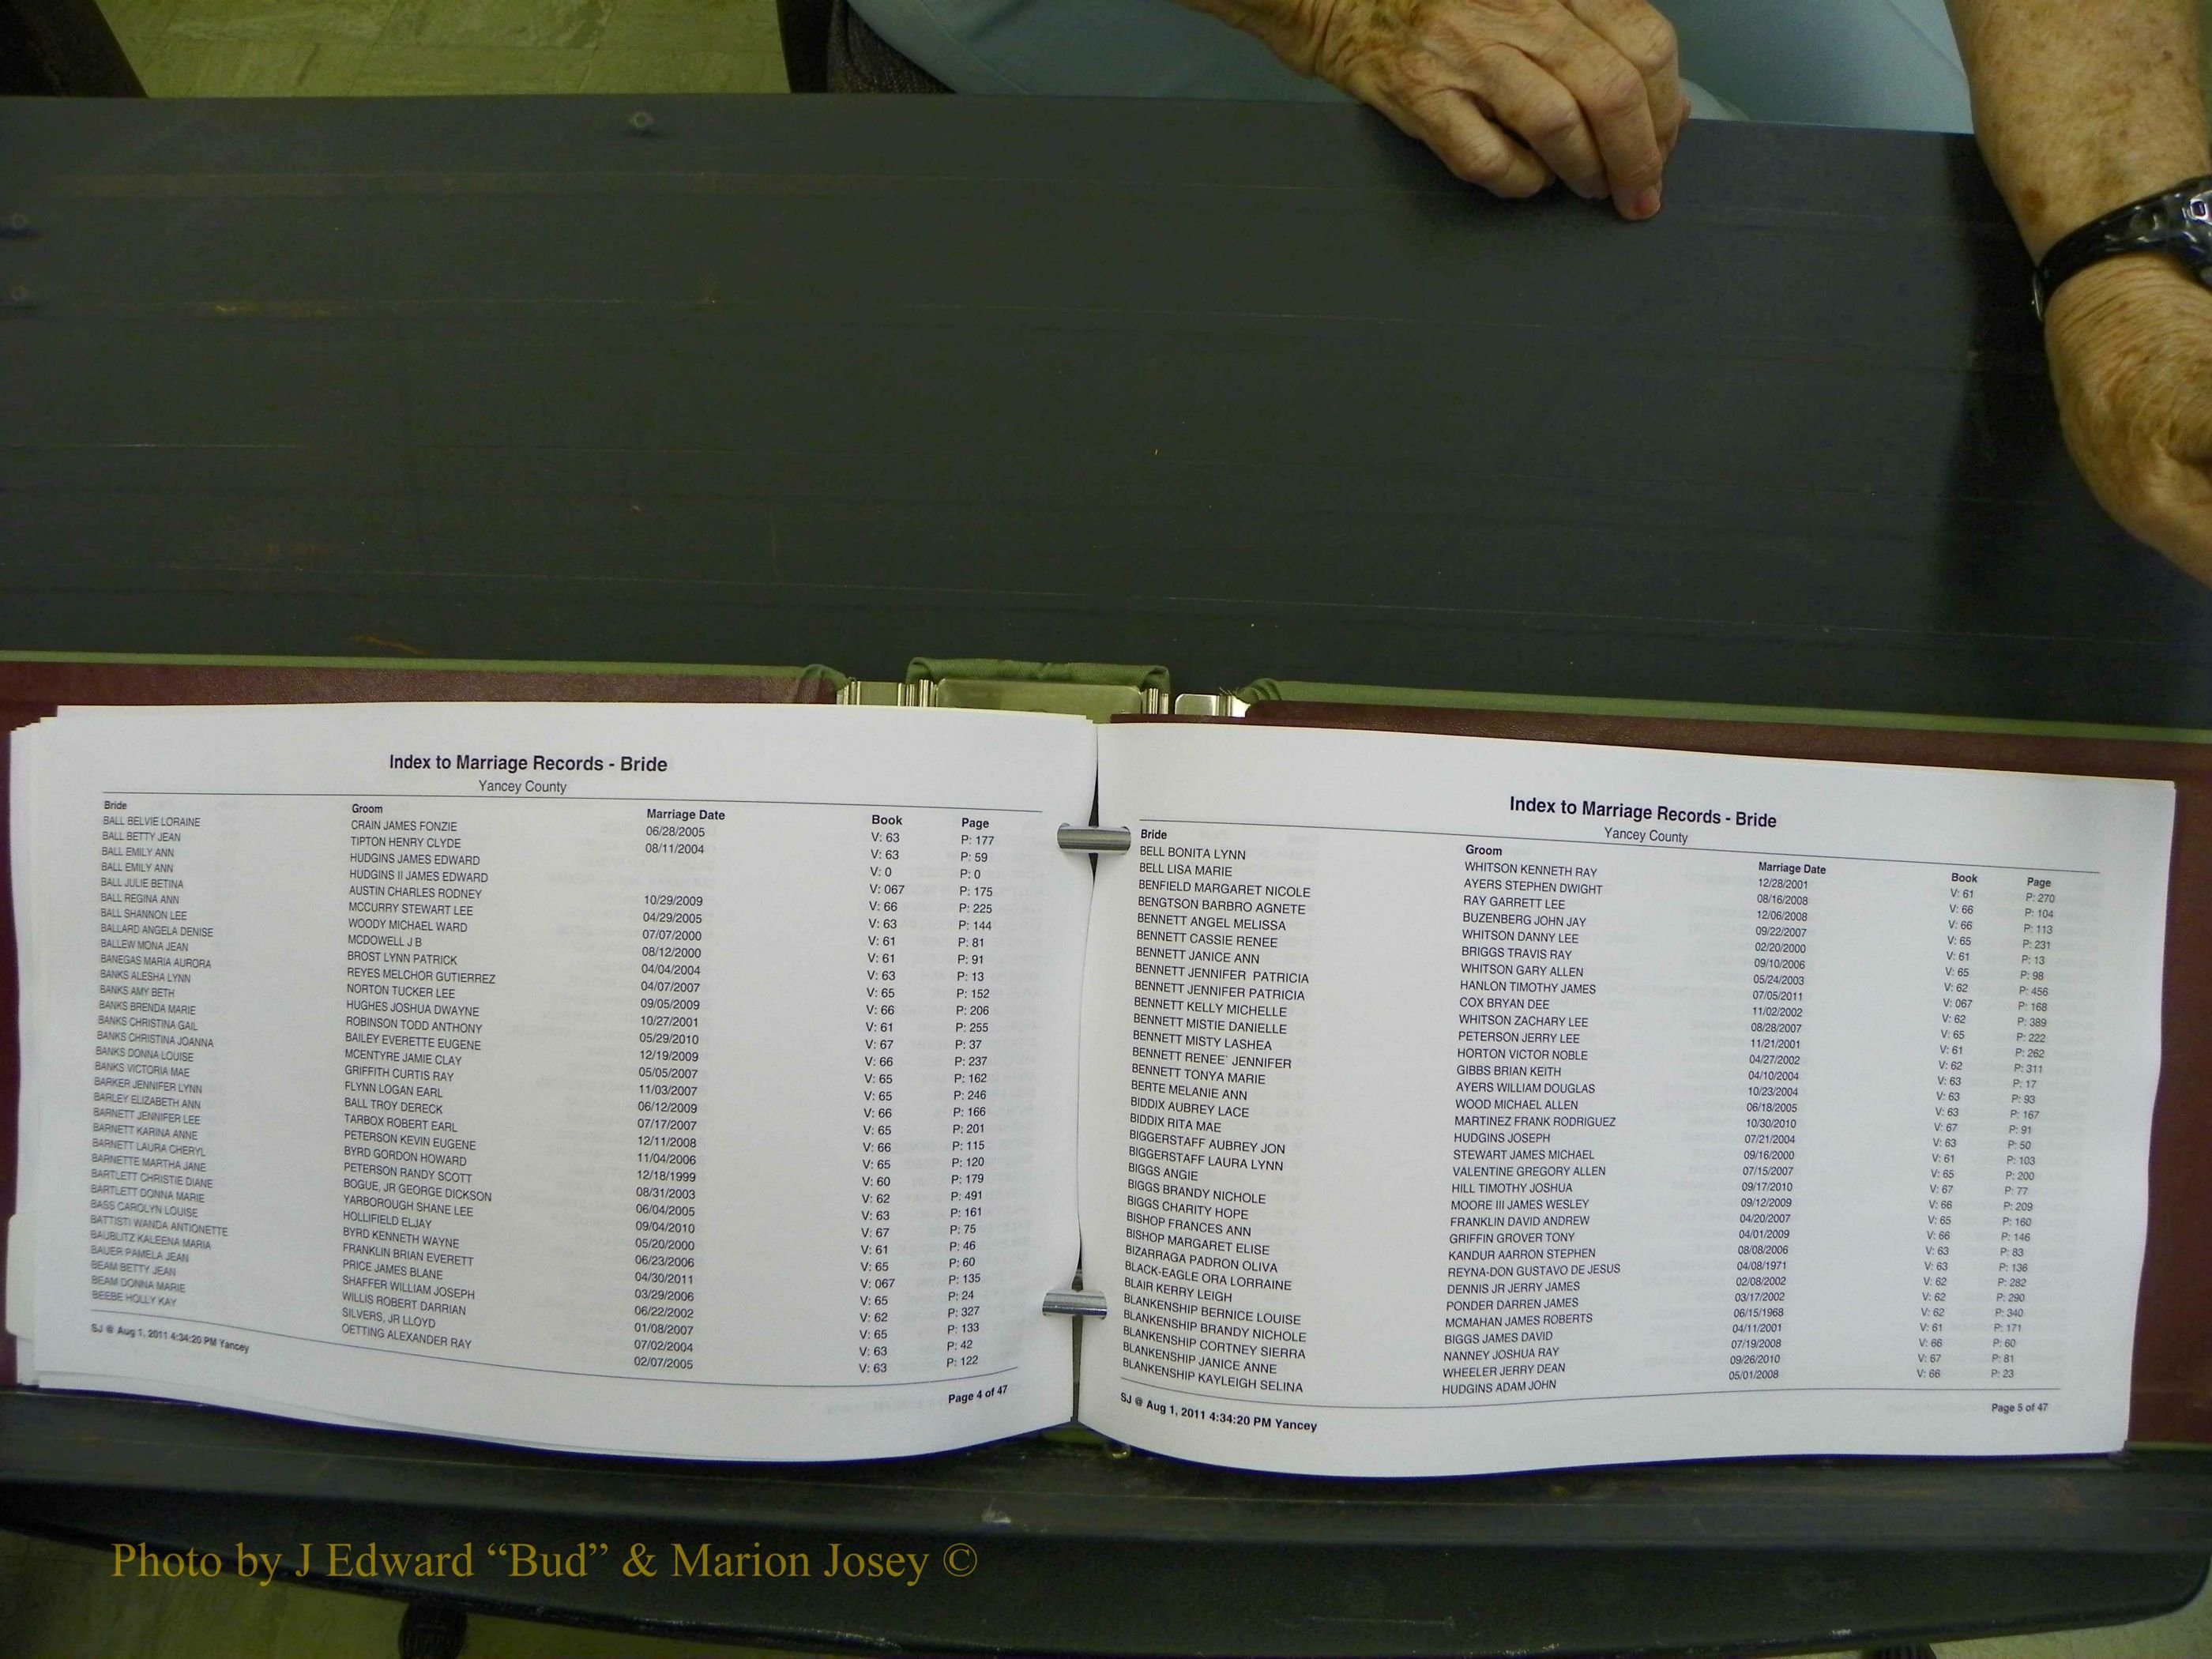 Index to Marriage Records - Bride
Yancey County
Bride Groom Marriage Date Book Page
BALL BELVIE LORAINE CRAIN JAMES FONZIE 06/28/2005 V: 63 P: 177
BALL BETTY JEAN TIPTON HENRY CLYDE 08/11/2004 V: 63 P: 59
BALL EMILY ANN HUDGINS JAMES EDWARD V: 0 P: 0
BALL EMILY ANN HUDGINS II JAMES EDWARD V: 067 P: 175
BALL JULIE BETINA AUSTIN CHARLES RODNEY 10/29/2009 V: 66 P: 225
BALL REGINA ANN MCCURRY STEWART LEE 04/29/2005 V: 63 P: 144
BALL SHANNON LEE WOODY MICHAEL WARD 07/07/2000 V: 61 P: 81
BALLARD ANGELA DENISE MCDOWELL J B 08/12/2000 V: 61 P: 91
BALLEW MONA JEAN BROST LYNN PATRICK 04/04/2004 V: 63 P: 13
BANEGAS MARIA AURORA REYES MELCHOR GUTIERREZ 04/07/2007 V: 65 P: 152
BANKS ALESHA LYNN NORTON TUCKER LEE 09/05/2009 V: 66 P: 206
BANKS AMY BETH HUGHES JOSHUA DWAYNE 10/27/2001 V: 61 P: 255
BANKS BRENDA MARIE ROBINSON TODD ANTHONY 05/29/2010 V: 67 P: 37
BANKS CHRISTINA GAIL BAILEY EVERETTE EUGENE 12/19/2009 V: 66 P: 237
BANKS CHRISTINA JOANNA MCENTYRE JAMIE CLAY 05/05/2007 V: 65 P: 162
BANKS DONNA LOUISE GRIFFITH CURTIS RAY 11/03/2007 V: 65 P: 246
BANKS VICTORIA MAE FLYNN LOGAN EARL 06/12/2009 V: 66 P: 166
BARKER JENNIFER LYNN BALL TROY DERECK 07/17/2007 V: 65 P: 201
BARLEY ELIZABETH ANN TARBOX ROBERT EARL 12/11/2008 V: 66 P: 115
BARNETT JENNIFER LEE PETERSON KEVIN EUGENE 11/04/2006 V: 65 P: 120
BARNETT KARINA ANNE BYRD GORDON HOWARD 12/18/1999 V: 60 P: 179
BARNETT LAURA CHERYL PETERSON RANDY SCOTT 08/31/2003 V: 62 P: 491
BARNETTE MARTHA JANE BOGUE, JR GEORGE DICKSON 06/04/2005 V: 63 P: 161
BARTLETT CHRISTIE DIANE YARBOROUGH SHANE LEE 09/04/2010 V: 67 P: 75
BARTLETT DONNA MARIE HOLLIFIELD ELJAY 05/20/2000 V: 61 P: 46
BASS CAROLYN LOUISE BYRD KENNETH WAYNE 06/23/2006 V: 65 P: 60
BATTISTI WANDA ANTIONETTE FRANKLIN BRIAN EVERETT 04/30/2011 V: 067 P: 135
BAUBLITZ KALEENA MARIA PRICE JAMES BLANE 03/29/2006 V: 65 P: 24
BAUER PAMELA JEAN SHAFFER WILLIAM JOSEPH 06/22/2002 V: 62 P: 327
BEAM BETTY JEAN WILLIS ROBERT DARRIAN 01/08/2007 V: 65 P: 133
BEAM DONNA MARIE SILVERS, JR LLOYD 07/02/2004 V: 63 P: 42
BEEBE HOLLY KAY OETTING ALEXANDER RAY 02/07/2005 V: 63 P: 122
SJ @ Aug 1, 2011 4:34:20 PM Yancey Page 4 of 47
Index to Marriage Records - Bride
Yancey County
Bride Groom Marriage Date Book Page
BELL BONITA LYNN WHITSON KENNETH RAY 12/28/2001 V: 61 P: 270
BELL LISA MARIE AYERS STEPHEN DWIGHT 08/16/2008 V: 66 P: 104
BENFIELD MARGARET NICOLE RAY GARRETT LEE 12/06/2008 V: 66 P: 113
BENGTSON BARBRO AGNETE BUZENBERG JOHN JAY 09/22/2007 V: 65 P: 231
BENNETT ANGEL MELISSA WHITSON DANNY LEE 02/20/2000 V: 61 P: 13
BENNETT CASSIE RENEE BRIGGS TRAVIS RAY 09/10/2006 V: 65 P: 98
BENNETT JANICE ANN WHITSON GARY ALLEN 05/24/2003 V: 62 P: 456
BENNETT JENNIFER PATRICIA HANLON TIMOTHY JAMES 07/05/2011 V: 067 P: 168
BENNETT JENNIFER PATRICIA COX BRYAN DEE 11/02/2002 V: 62 P: 389
BENNETT KELLY MICHELLE WHITSON ZACHARY LEE 08/28/2007 V: 65 P: 222
BENNETT MISTIE DANIELLE PETERSON JERRY LEE 11/21/2001 V: 61 P: 262
BENNETT MISTY LASHEA HORTON VICTOR NOBLE 04/27/2002 V: 62 P: 311
BENNETT RENEE` JENNIFER GIBBS BRIAN KEITH 04/10/2004 V: 63 P: 17
BENNETT TONYA MARIE AYERS WILLIAM DOUGLAS 10/23/2004 V: 63 P: 93
BERTE MELANIE ANN WOOD MICHAEL ALLEN 06/18/2005 V: 63 P: 167
BIDDIX AUBREY LACE MARTINEZ FRANK RODRIGUEZ 10/30/2010 V: 67 P: 91
BIDDIX RITA MAE HUDGINS JOSEPH 07/21/2004 V: 63 P: 50
BIGGERSTAFF AUBREY JON STEWART JAMES MICHAEL 09/16/2000 V: 61 P: 103
BIGGERSTAFF LAURA LYNN VALENTINE GREGORY ALLEN 07/15/2007 V: 65 P: 200
BIGGS ANGIE HILL TIMOTHY JOSHUA 09/17/2010 V: 67 P: 77
BIGGS BRANDY NICHOLE MOORE III JAMES WESLEY 09/12/2009 V: 66 P: 209
BIGGS CHARITY HOPE FRANKLIN DAVID ANDREW 04/20/2007 V: 65 P: 160
BISHOP FRANCES ANN GRIFFIN GROVER TONY 04/01/2009 V: 66 P: 146
BISHOP MARGARET ELISE KANDUR AARRON STEPHEN 08/08/2006 V: 63 P: 83
BIZARRAGA PADRON OLIVA REYNA-DON GUSTAVO DE JESUS 04/08/1971 V: 63 P: 136
BLACK-EAGLE ORA LORRAINE DENNIS JR JERRY JAMES 02/08/2002 V: 62 P: 282
BLAIR KERRY LEIGH PONDER DARREN JAMES 03/17/2002 V: 62 P: 290
BLANKENSHIP BERNICE LOUISE MCMAHAN JAMES ROBERTS 06/15/1968 V: 62 P: 340
BLANKENSHIP BRANDY NICHOLE BIGGS JAMES DAVID 04/11/2001 V: 61 P: 171
BLANKENSHIP CORTNEY SIERRA NANNEY JOSHUA RAY 07/19/2008 V: 66 P: 60
BLANKENSHIP JANICE ANNE WHEELER JERRY DEAN 09/26/2010 V: 67 P: 81
BLANKENSHIP KAYLEIGH SELINA HUDGINS ADAM JOHN 05/01/2008 V: 66 P: 23
SJ @ Aug 1, 2011 4:34:20 PM Yancey Page 5 of 47
Photo by J Edward “Bud” & Marion Josey ©